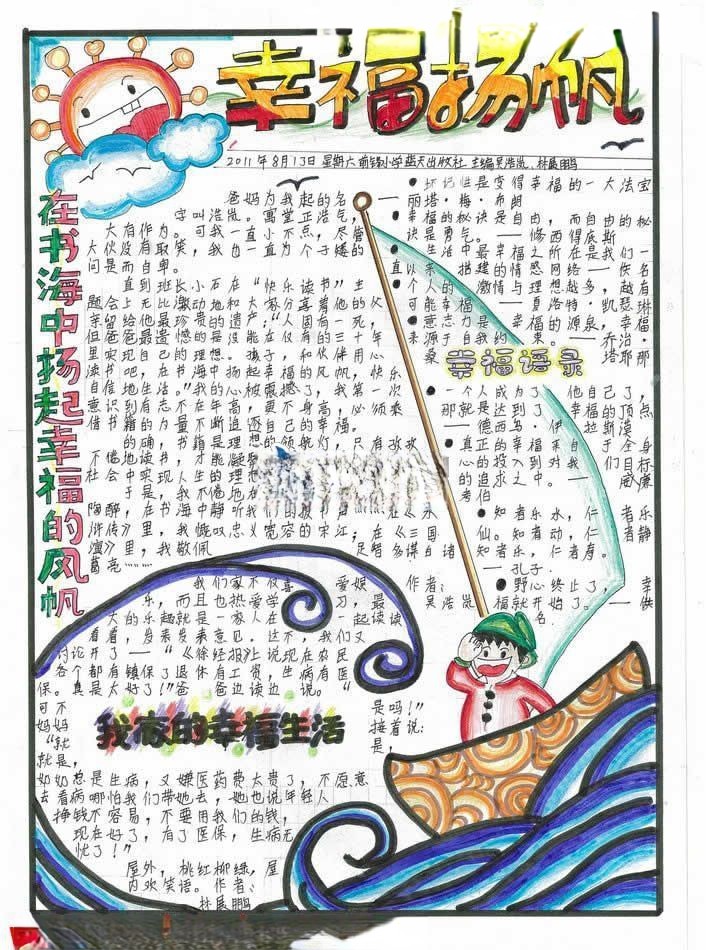 幸福扬帆
2011年8月13日 星期六 前锋小学蓝天出版社 主编吴浩岚 林展鹏
在书海中扬起幸福的风帆
爸妈为我起的名
字叫浩岚。寓堂正浩气，
大有作为。可我一直小不点，尽管
大伙没有取笑，我也一直为个子矮的
问是而自卑。
直到班长小石在“快乐读书”主
题会上无比激动地和大家分享着他的父
亲留给他最珍贵的遗产：“人固有一死，
但爸爸最遗憾的是没能在仅有的三十年
里实现自己的理想。孩子，和伙伴用心
读书吧，在书海中扬起幸福的风帆，快乐
自信地生活。”我的心被震撼了，我第一次
意识到有志不在年高，更不身高，必须乘
借书籍的力量不断追逐自己的幸福。
的确，书籍是理想的领航灯，只有孜孜
不倦地读书，才能
社会中实现人生的理想
于是，我不倦地在
陶醉，在书海中静听我
浒传》里，我慨叹忠义宽容的宋江；在《三国
演》里，我敬佩 足智多谋自诸
葛亮
作者：
吴浩岚
坏记性是变得幸福的一大法宝
——丽塔·梅·布朗
幸福的秘诀是自由，而自由的秘
诀是勇气。——修西得底斯
生活中最幸福之所在是我们一
直以来搭建的情感网络——佚名
个人的激情与理想越多，越有
可能幸福——夏洛特·凯瑟琳
意志力是幸福的源泉，幸福
来源于自我约束。——乔治·
桑塔耶那
幸福语录
一个人成为了他自己了，
那就是达到了幸福的顶点
——德西乌·伊拉斯谟
真正的幸福来自于全身
心的投入到对我们目标
的追求之中。——威廉
考伯
知者乐水，仁者乐
仙。知者动，仁者静
知者乐，仁者寿。
——孔子
野心终止了，幸
福就开始了。——佚
名
我家的幸福生活
我们家不仅喜爱娱
乐，而且也热爱学习，最
大的乐趣就是一家人在一起读读
看看，发表发表意见。这不，我们又
讨论开了——“《徐经报》上说现在农民
各个都有镇保了退休有工资，生病有医
保。真是太好了！”爸爸边读边说。“
可不是吗！”
妈妈接着说：
“就是，
就是，
奶奶总是生病，又嫌医药费太贵了，不愿意
去看病哪怕我们带她去，她也说年轻人
挣钱不容易，不要用我们的钱，
现在好了，有了医保，生病无
忧了！”
屋外，桃红柳绿，屋
内欢笑语。作者：
林展鹏